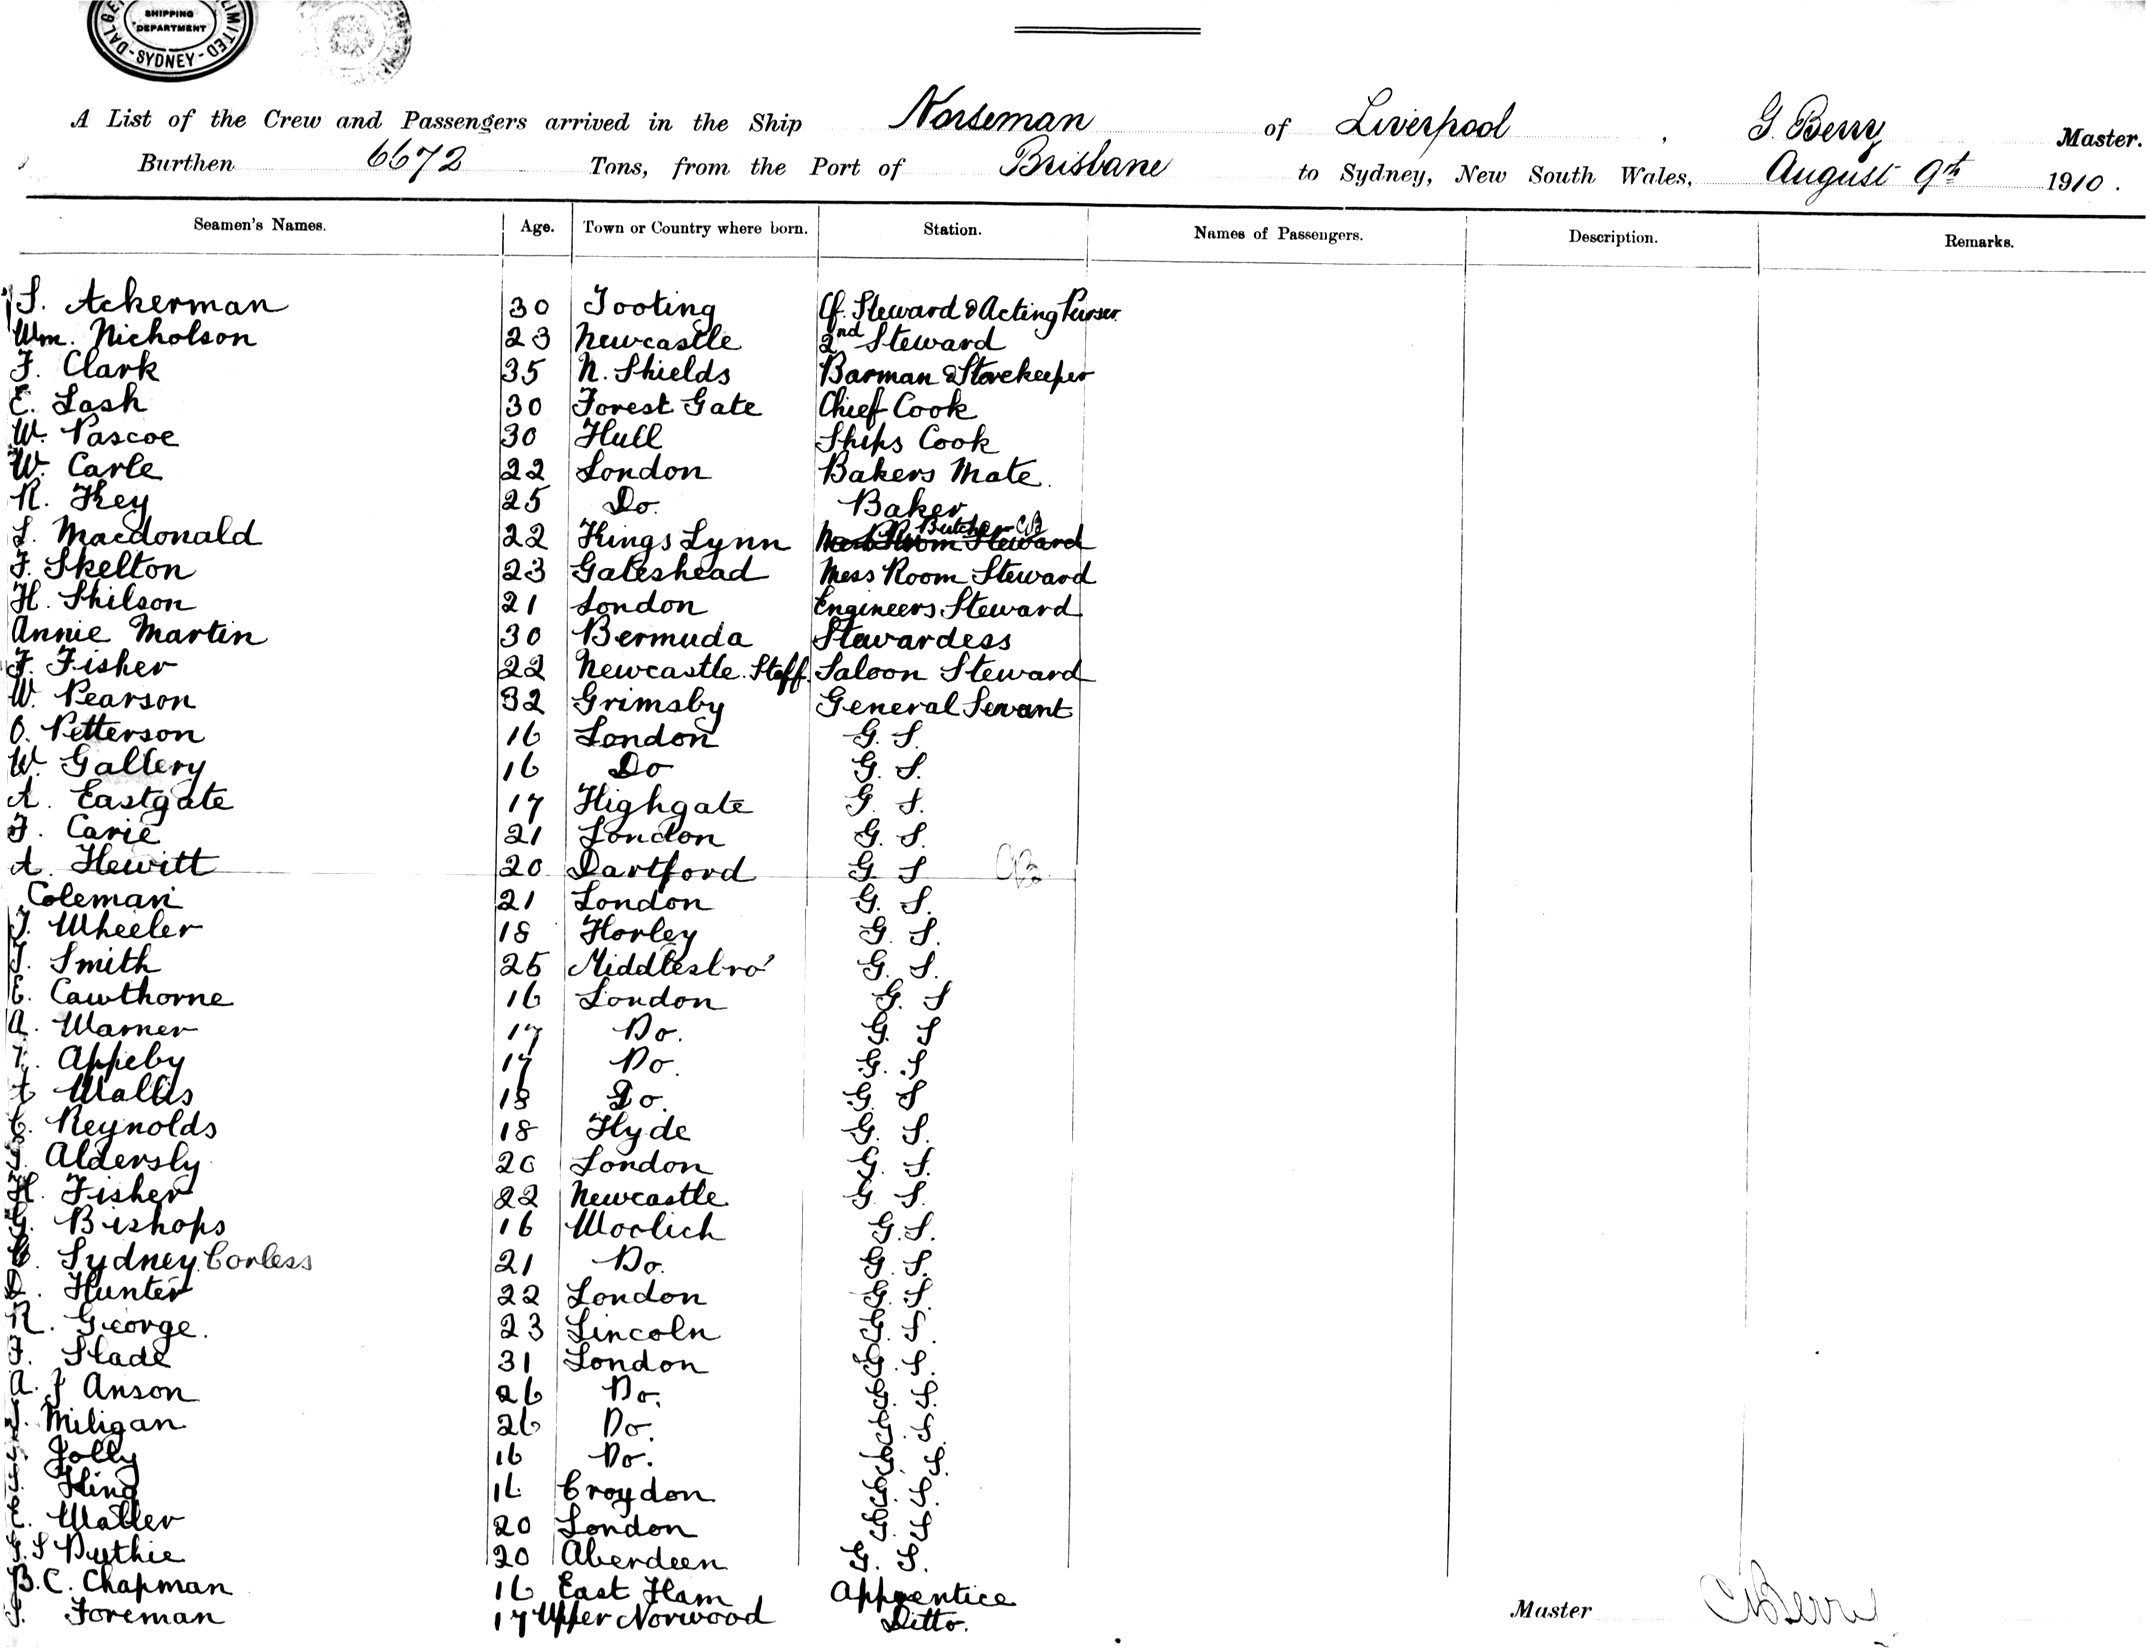 DALGETY LIMITED SHIPPING DEPARTMENT SYDNEY
A List of the Crew and Passengers arrived in the Ship Norseman of Liverpool, G. Berry Master.
Burthen 6672 Tons, from the Port of Brisbane to Sydney, New South Wales, August 9th 1910.
Seamen's Names. Age. Town or Country where born. Station. Names of Passengers. Description. Remarks.
S. Ackerman 30 Tooting Cf. Steward & Acting Purser
Wm. Nicholson 23 Newcastle 2nd Steward
F. Clark 35 N. Shields Barman & Storekeeper
E. Lash 30 Forest Gate Chief Cook
W. Pascoe 30 Hull Ships Cook
W. Carle 22 London Bakers Mate.
R. Key 25 Do. Baker
L. Macdonald 22 Kings Lynn Mess Room Steward Butcher CB
F. Skelton 23 Gateshead Mess Room Steward
H. Shilson 21 London Engineers Steward
Annie Martin 30 Bermuda Stewardess
F. Fisher 22 Newcastle. Staff. Saloon Steward
W. Pearson 32 Grimsby General Servant
O. Petterson 16 London G. S.
W. Gallery 16 Do G. S.
A. Eastgate 17 Highgate G. S.
F. Carie 21 London G. S.
A. Hewitt 20 Dartford G S CB
Coleman 21 London G. S.
T. Wheeler 18 Horley G. S.
T. Smith 25 Middlesbro' G. S.
E. Cawthorne 16 London G. S
A. Warner 17 Do. G. S
Appeby 17 Do. G. S
Wallis 18 Do. G. S
C. Reynolds 18 Hyde G. S.
Aldersly 20 London G. S.
H. Fisher 22 Newcastle G. S.
G. Bishops 16 Woolich G. S.
C. Sydney Corless 21 Do. G. S.
Hunter 22 London G. S.
R. George. 23 Lincoln G. S.
F. Slade 31 London G. S.
A. J Anson 26 Do. G. S.
Miligan 26 Do. G. S.
Jolly 16 Do. G. S.
King 16 Croydon G. S.
Waller 20 London G. S.
S Duthie 20 Aberdeen G. S.
B. C. Chapman 16 East Ham Apprentice
Foreman 17 Upper Norwood Ditto.
Master CBerry